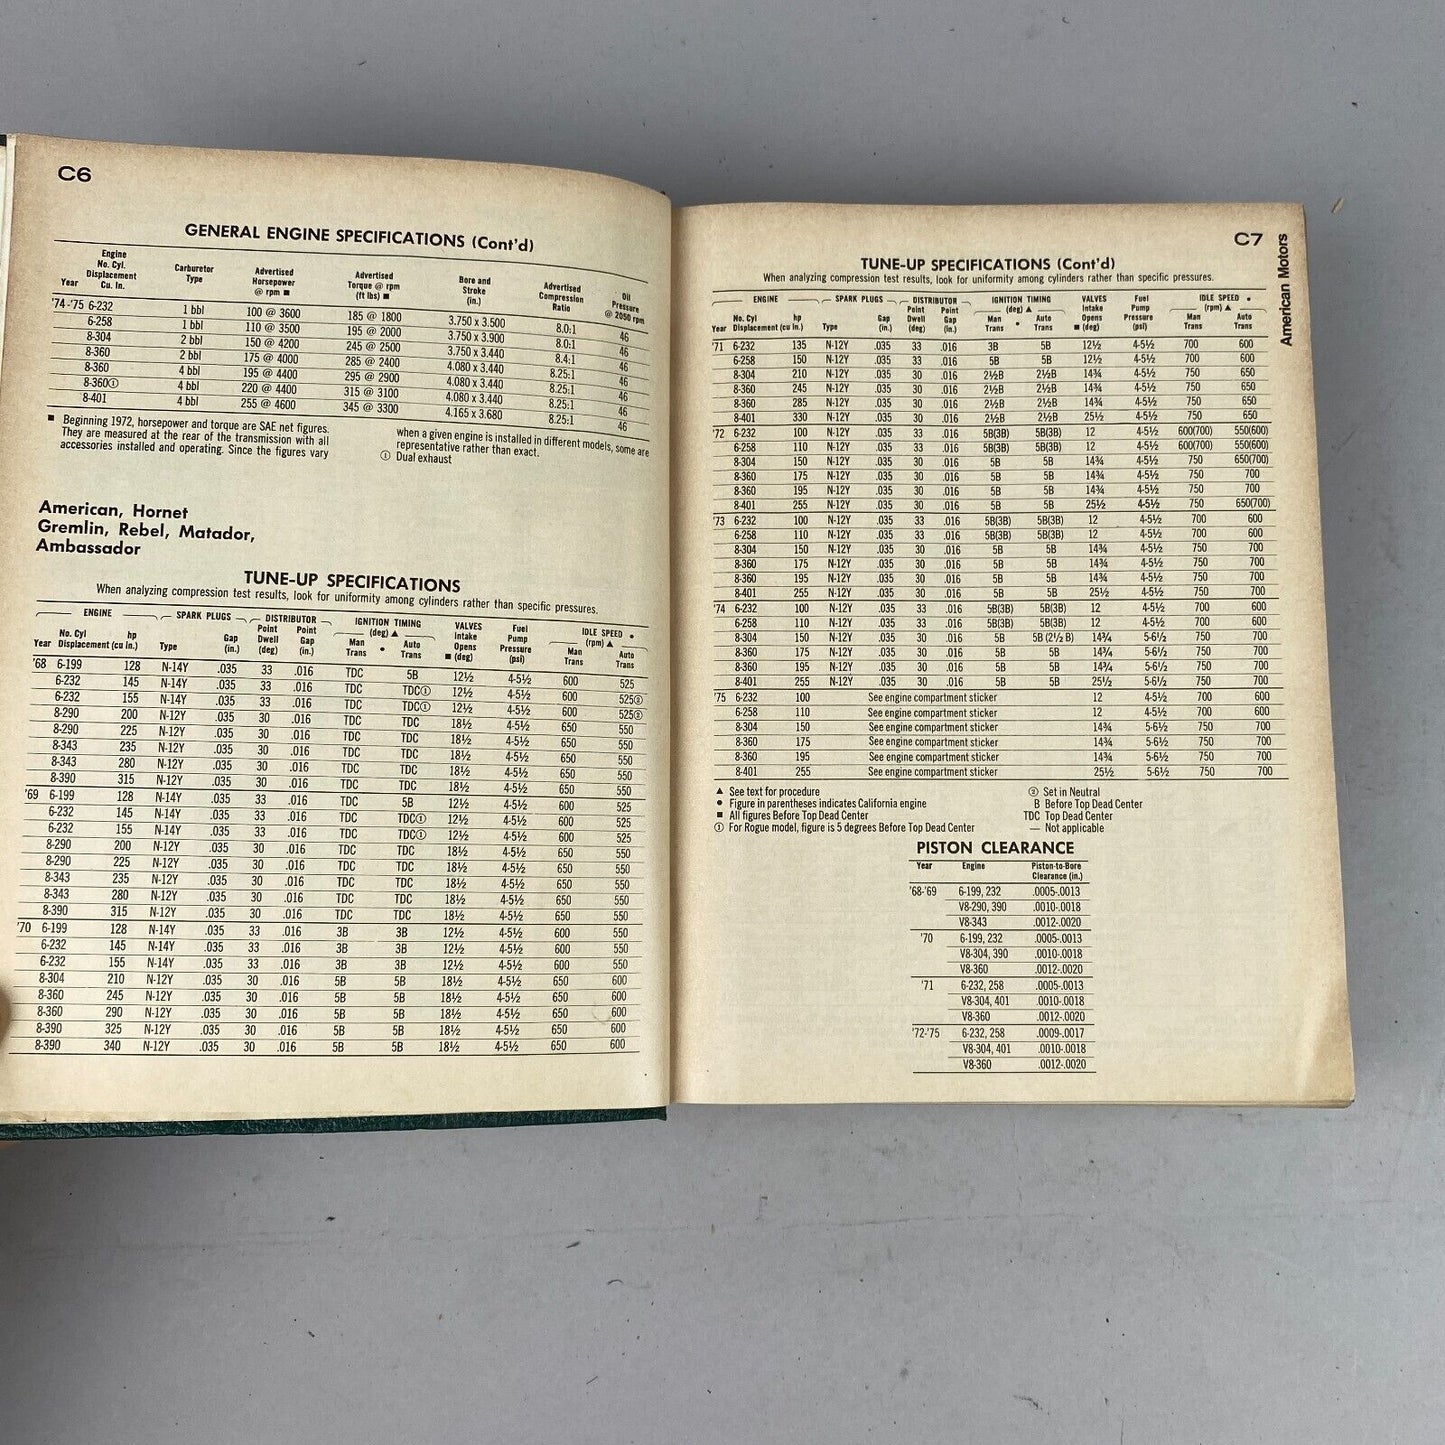 C6
GENERAL ENGINE SPECIFICATIONS (Cont'd)
Year Engine No. Cyl. Displacement Cu. In. Carburetor Type Advertised Horsepower @ rpm ■ Advertised Torque @ rpm (ft lbs) ■ Bore and Stroke (in.) Advertised Compression Ratio Oil Pressure @ 2050 rpm
'74-'75 6-232 1 bbl 100 @ 3600 185 @ 1800 3.750 x 3.500 8.0:1 46
6-258 1 bbl 110 @ 3500 195 @ 2000 3.750 x 3.900 8.0:1 46
8-304 2 bbl 150 @ 4200 245 @ 2500 3.750 x 3.440 8.4:1 46
8-360 2 bbl 175 @ 4000 285 @ 2400 4.080 x 3.440 8.25:1 46
8-360 4 bbl 195 @ 4400 295 @ 2900 4.080 x 3.440 8.25:1 46
8-360① 4 bbl 220 @ 4400 315 @ 3100 4.080 x 3.440 8.25:1 46
8-401 4 bbl 255 @ 4600 345 @ 3300 4.165 x 3.680 8.25:1 46
■ Beginning 1972, horsepower and torque are SAE net figures.
They are measured at the rear of the transmission with all
accessories installed and operating. Since the figures vary
when a given engine is installed in different models, some are
representative rather than exact.
① Dual exhaust
American, Hornet
Gremlin, Rebel, Matador,
Ambassador
TUNE-UP SPECIFICATIONS
When analyzing compression test results, look for uniformity among cylinders rather than specific pressures.
ENGINE SPARK PLUGS DISTRIBUTOR IGNITION TIMING (deg) ▲ VALVES Fuel IDLE SPEED • (rpm) ▲
Year No. Cyl Displacement (cu in.) hp Type Gap (in.) Point Dwell (deg) Point Gap (in.) Man Trans • Auto Trans Intake Opens ■ (deg) Pump Pressure (psi) Man Trans Auto Trans
'68 6-199 128 N-14Y .035 33 .016 TDC 5B 12½ 4-5½ 600 525
6-232 145 N-14Y .035 33 .016 TDC TDC① 12½ 4-5½ 600 525②
6-232 155 N-14Y .035 33 .016 TDC TDC① 12½ 4-5½ 600 525②
8-290 200 N-12Y .035 30 .016 TDC TDC 18½ 4-5½ 650 550
8-290 225 N-12Y .035 30 .016 TDC TDC 18½ 4-5½ 650 550
8-343 235 N-12Y .035 30 .016 TDC TDC 18½ 4-5½ 650 550
8-343 280 N-12Y .035 30 .016 TDC TDC 18½ 4-5½ 650 550
8-390 315 N-12Y .035 30 .016 TDC TDC 18½ 4-5½ 650 550
'69 6-199 128 N-14Y .035 33 .016 TDC 5B 12½ 4-5½ 600 525
6-232 145 N-14Y .035 33 .016 TDC TDC① 12½ 4-5½ 600 525
6-232 155 N-14Y .035 33 .016 TDC TDC① 12½ 4-5½ 600 525
8-290 200 N-12Y .035 30 .016 TDC TDC 18½ 4-5½ 650 550
8-290 225 N-12Y .035 30 .016 TDC TDC 18½ 4-5½ 650 550
8-343 235 N-12Y .035 30 .016 TDC TDC 18½ 4-5½ 650 550
8-343 280 N-12Y .035 30 .016 TDC TDC 18½ 4-5½ 650 550
8-390 315 N-12Y .035 30 .016 TDC TDC 18½ 4-5½ 650 550
'70 6-199 128 N-14Y .035 33 .016 3B 3B 12½ 4-5½ 600 550
6-232 145 N-14Y .035 33 .016 3B 3B 12½ 4-5½ 600 550
6-232 155 N-14Y .035 33 .016 3B 3B 12½ 4-5½ 600 550
8-304 210 N-12Y .035 30 .016 5B 5B 18½ 4-5½ 650 600
8-360 245 N-12Y .035 30 .016 5B 5B 18½ 4-5½ 650 600
8-360 290 N-12Y .035 30 .016 5B 5B 18½ 4-5½ 650 600
8-390 325 N-12Y .035 30 .016 5B 5B 18½ 4-5½ 650 600
8-390 340 N-12Y .035 30 .016 5B 5B 18½ 4-5½ 650 600
C7
American Motors
TUNE-UP SPECIFICATIONS (Cont'd)
When analyzing compression test results, look for uniformity among cylinders rather than specific pressures.
ENGINE SPARK PLUGS DISTRIBUTOR IGNITION TIMING (deg) ▲ VALVES Fuel IDLE SPEED • (rpm) ▲
Year No. Cyl Displacement (cu in.) hp Type Gap (in.) Point Dwell (deg) Point Gap (in.) Man Trans • Auto Trans Intake Opens ■ (deg) Pump Pressure (psi) Man Trans Auto Trans
'71 6-232 135 N-12Y .035 33 .016 3B 5B 12½ 4-5½ 700 600
6-258 150 N-12Y .035 33 .016 5B 5B 12½ 4-5½ 700 600
8-304 210 N-12Y .035 30 .016 2½B 2½B 14¾ 4-5½ 750 650
8-360 245 N-12Y .035 30 .016 2½B 2½B 14¾ 4-5½ 750 650
8-360 285 N-12Y .035 30 .016 2½B 2½B 14¾ 4-5½ 750 650
8-401 330 N-12Y .035 30 .016 2½B 2½B 25½ 4-5½ 750 650
'72 6-232 100 N-12Y .035 33 .016 5B(3B) 5B(3B) 12 4-5½ 600(700) 550(600)
6-258 110 N-12Y .035 33 .016 5B(3B) 5B(3B) 12 4-5½ 600(700) 550(600)
8-304 150 N-12Y .035 30 .016 5B 5B 14¾ 4-5½ 750 650(700)
8-360 175 N-12Y .035 30 .016 5B 5B 14¾ 4-5½ 750 700
8-360 195 N-12Y .035 30 .016 5B 5B 14¾ 4-5½ 750 700
8-401 255 N-12Y .035 30 .016 5B 5B 25½ 4-5½ 750 650(700)
'73 6-232 100 N-12Y .035 33 .016 5B(3B) 5B(3B) 12 4-5½ 700 600
6-258 110 N-12Y .035 33 .016 5B(3B) 5B(3B) 12 4-5½ 700 600
8-304 150 N-12Y .035 30 .016 5B 5B 14¾ 4-5½ 750 700
8-360 175 N-12Y .035 30 .016 5B 5B 14¾ 4-5½ 750 700
8-360 195 N-12Y .035 30 .016 5B 5B 14¾ 4-5½ 750 700
8-401 255 N-12Y .035 30 .016 5B 5B 25½ 4-5½ 750 700
'74 6-232 100 N-12Y .035 33 .016 5B(3B) 5B(3B) 12 4-5½ 700 600
6-258 110 N-12Y .035 33 .016 5B(3B) 5B(3B) 12 4-5½ 700 600
8-304 150 N-12Y .035 30 .016 5B 5B (2½ B) 14¾ 5-6½ 750 700
8-360 175 N-12Y .035 30 .016 5B 5B 14¾ 5-6½ 750 700
8-360 195 N-12Y .035 30 .016 5B 5B 14¾ 5-6½ 750 700
8-401 255 N-12Y .035 30 .016 5B 5B 25½ 5-6½ 750 700
'75 6-232 100 See engine compartment sticker 12 4-5½ 700 600
6-258 110 See engine compartment sticker 12 4-5½ 700 600
8-304 150 See engine compartment sticker 14¾ 5-6½ 750 700
8-360 175 See engine compartment sticker 14¾ 5-6½ 750 700
8-360 195 See engine compartment sticker 14¾ 5-6½ 750 700
8-401 255 See engine compartment sticker 25½ 5-6½ 750 700
▲ See text for procedure
• Figure in parentheses indicates California engine
■ All figures Before Top Dead Center
① For Rogue model, figure is 5 degrees Before Top Dead Center
② Set in Neutral
B Before Top Dead Center
TDC Top Dead Center
— Not applicable
PISTON CLEARANCE
Year Engine Piston-to-Bore Clearance (in.)
'68-'69 6-199, 232 .0005-.0013
V8-290, 390 .0010-.0018
V8-343 .0012-.0020
'70 6-199, 232 .0005-.0013
V8-304, 390 .0010-.0018
V8-360 .0012-.0020
'71 6-232, 258 .0005-.0013
V8-304, 401 .0010-.0018
V8-360 .0012-.0020
'72-'75 6-232, 258 .0009-.0017
V8-304, 401 .0010-.0018
V8-360 .0012-.0020